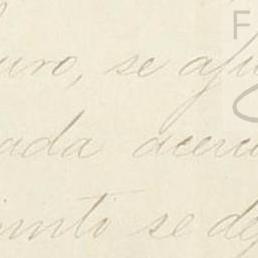 uro, se afi
ada acerc
imto se de